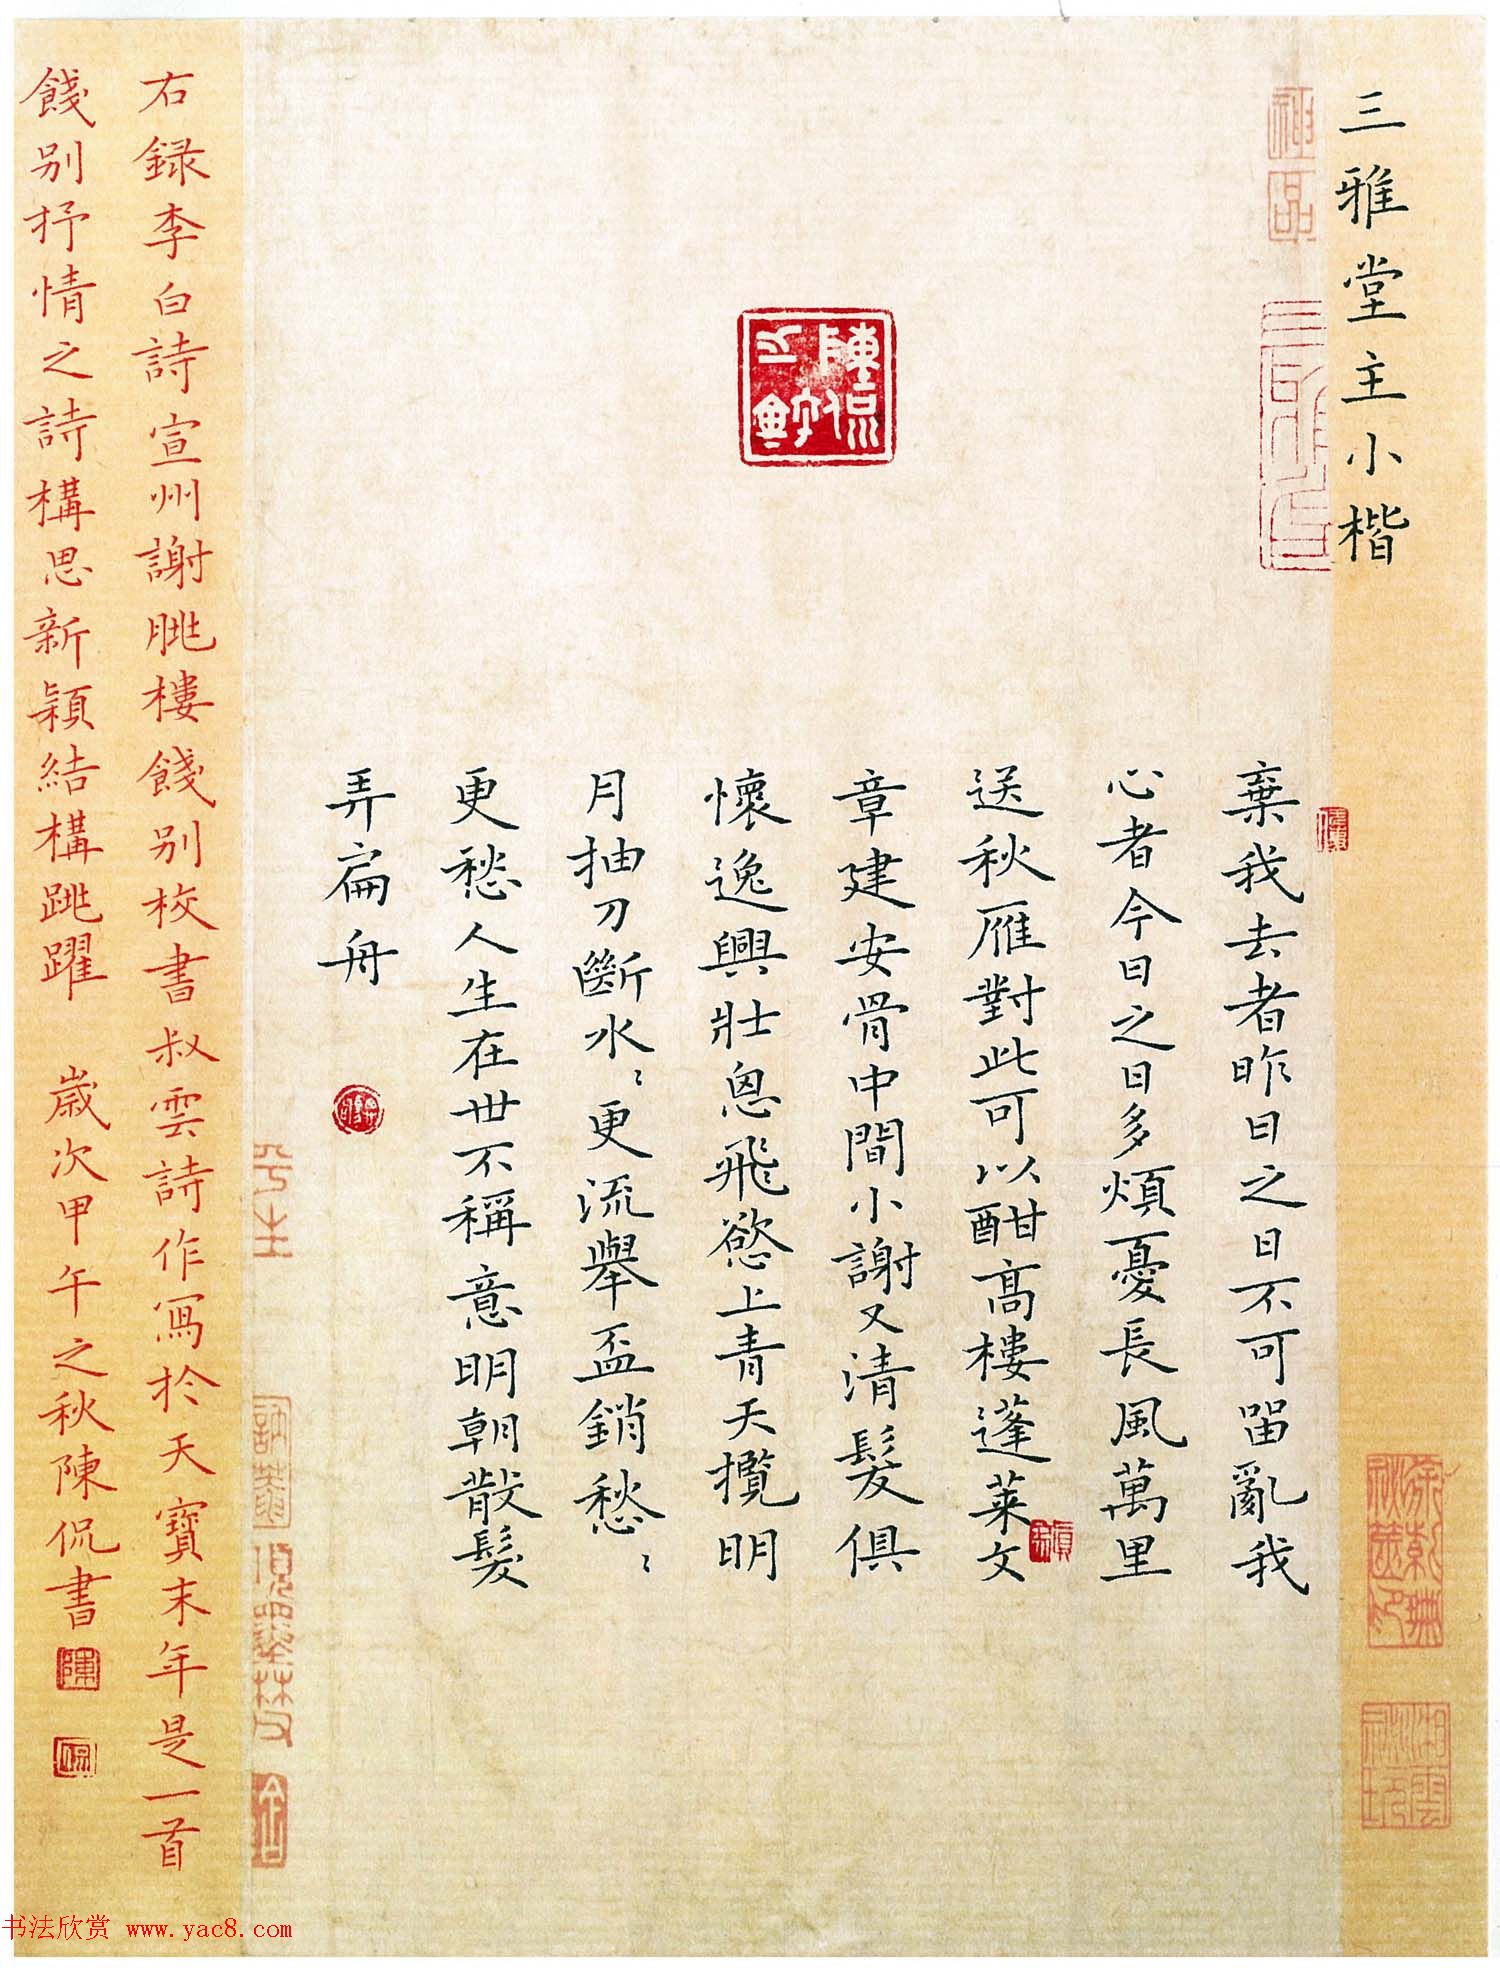 三雅堂主小楷
棄我去者昨日之日不可㽞亂我
心者今日之日多煩憂長風萬里
送秋雁對此可以酣高樓蓬萊文
章建安骨中間小謝又清髮俱
懷逸興壯恖飛慾上青天攬明
月抽刀斷水〻更流舉盃銷愁〻
更愁人生在世不稱意明朝散髮
弄扁舟
右録李白詩宣州謝朓樓餞別校書叔雲詩作寫於天寶末年是一首
餞別抒情之詩構思新穎結構跳躍 歲次甲午之秋陳侃書
书法欣赏 www.yac8.com